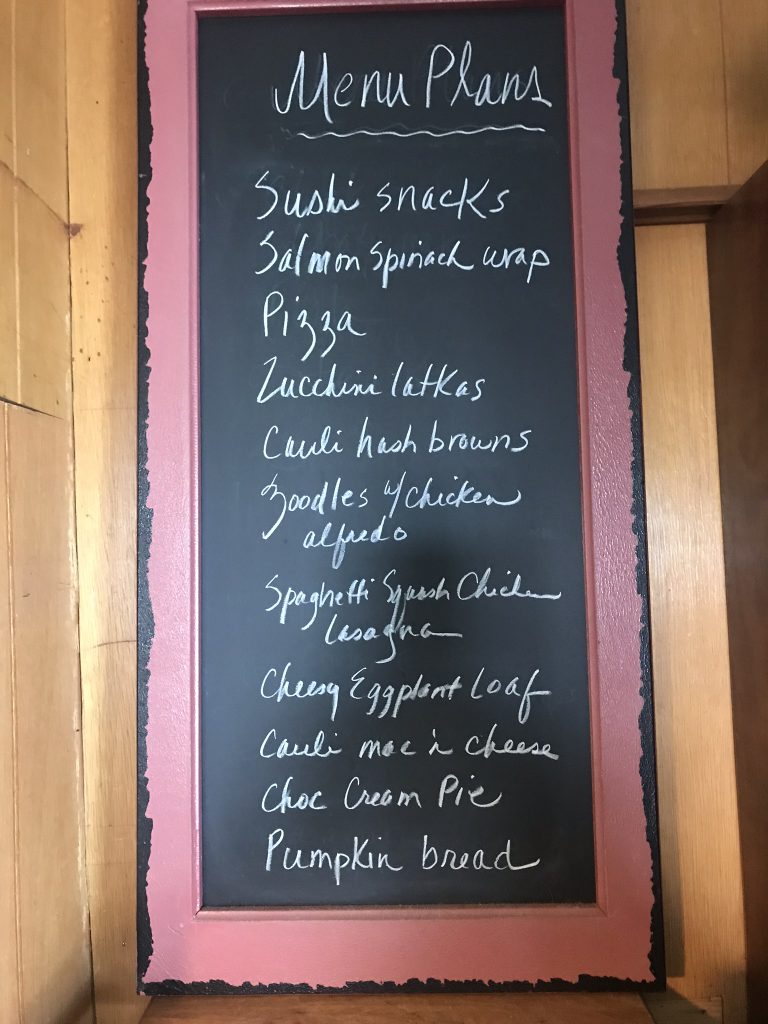 Menu Plans
Sushi snacks
Salmon spinach wrap
Pizza
Zucchini latkas
Cauli hash browns
Zoodles w/chicken
alfredo
Spaghetti Squash Chicken
lasagna
Cheesy Eggplant Loaf
Cauli mac 'n cheese
Choc Cream Pie
Pumpkin bread